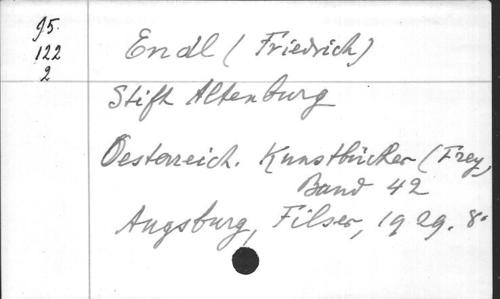 95.
122
2
Endl (Friedrich)
Stift Altenburg
Oesterreich. Kunstbücher (Frey,
Band 42
Augsburg, Filser, 1929. 8°